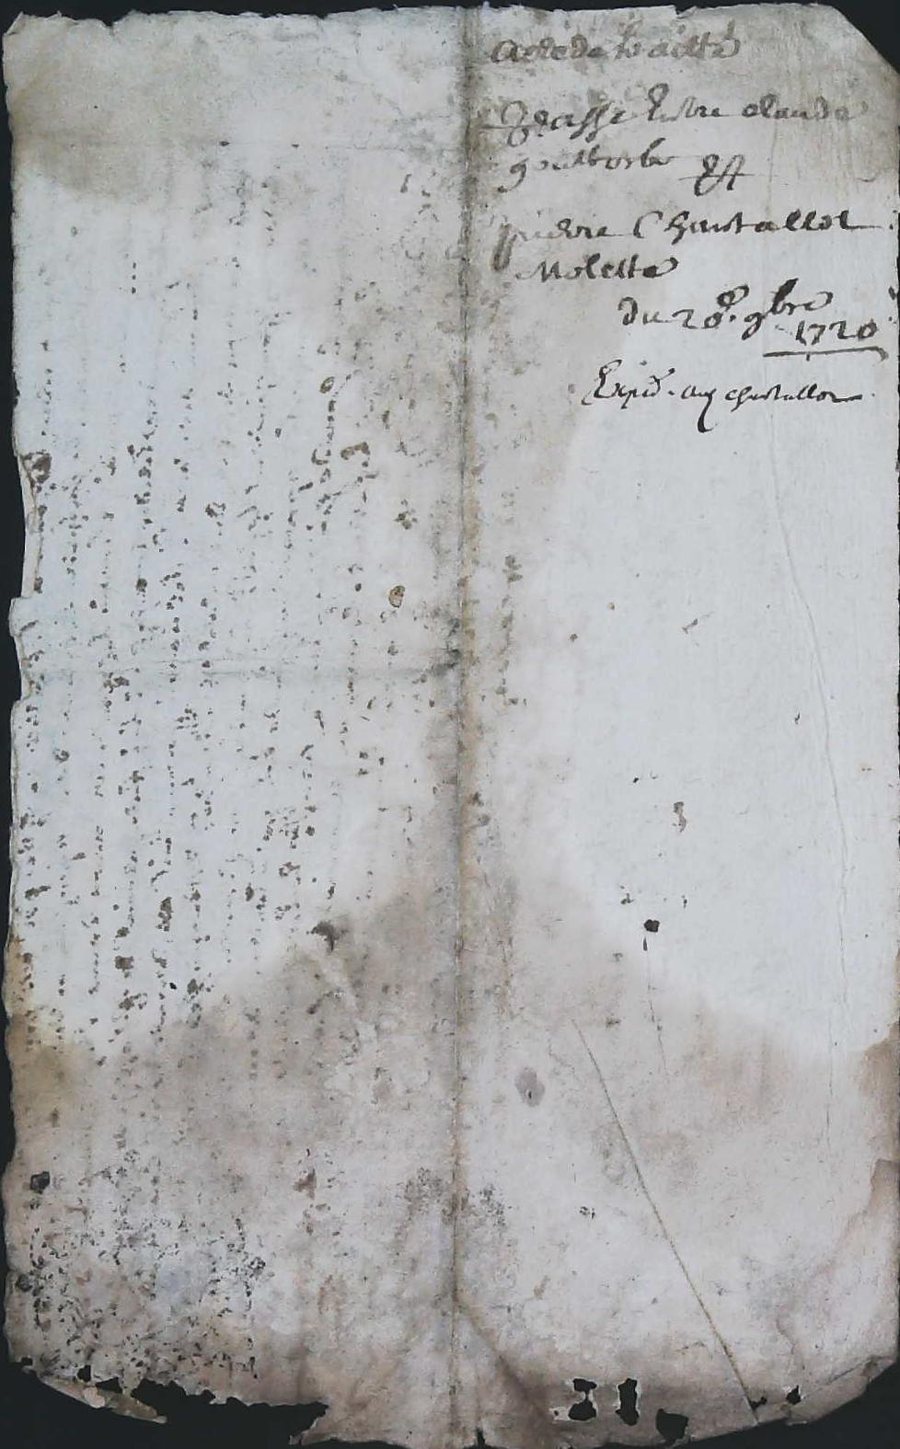 acte de traitté
passé Entre claude
goultorbe Et
pierre Chastallot
Molette
du 28e. 9bre
1720
Expéd. aux chastallot